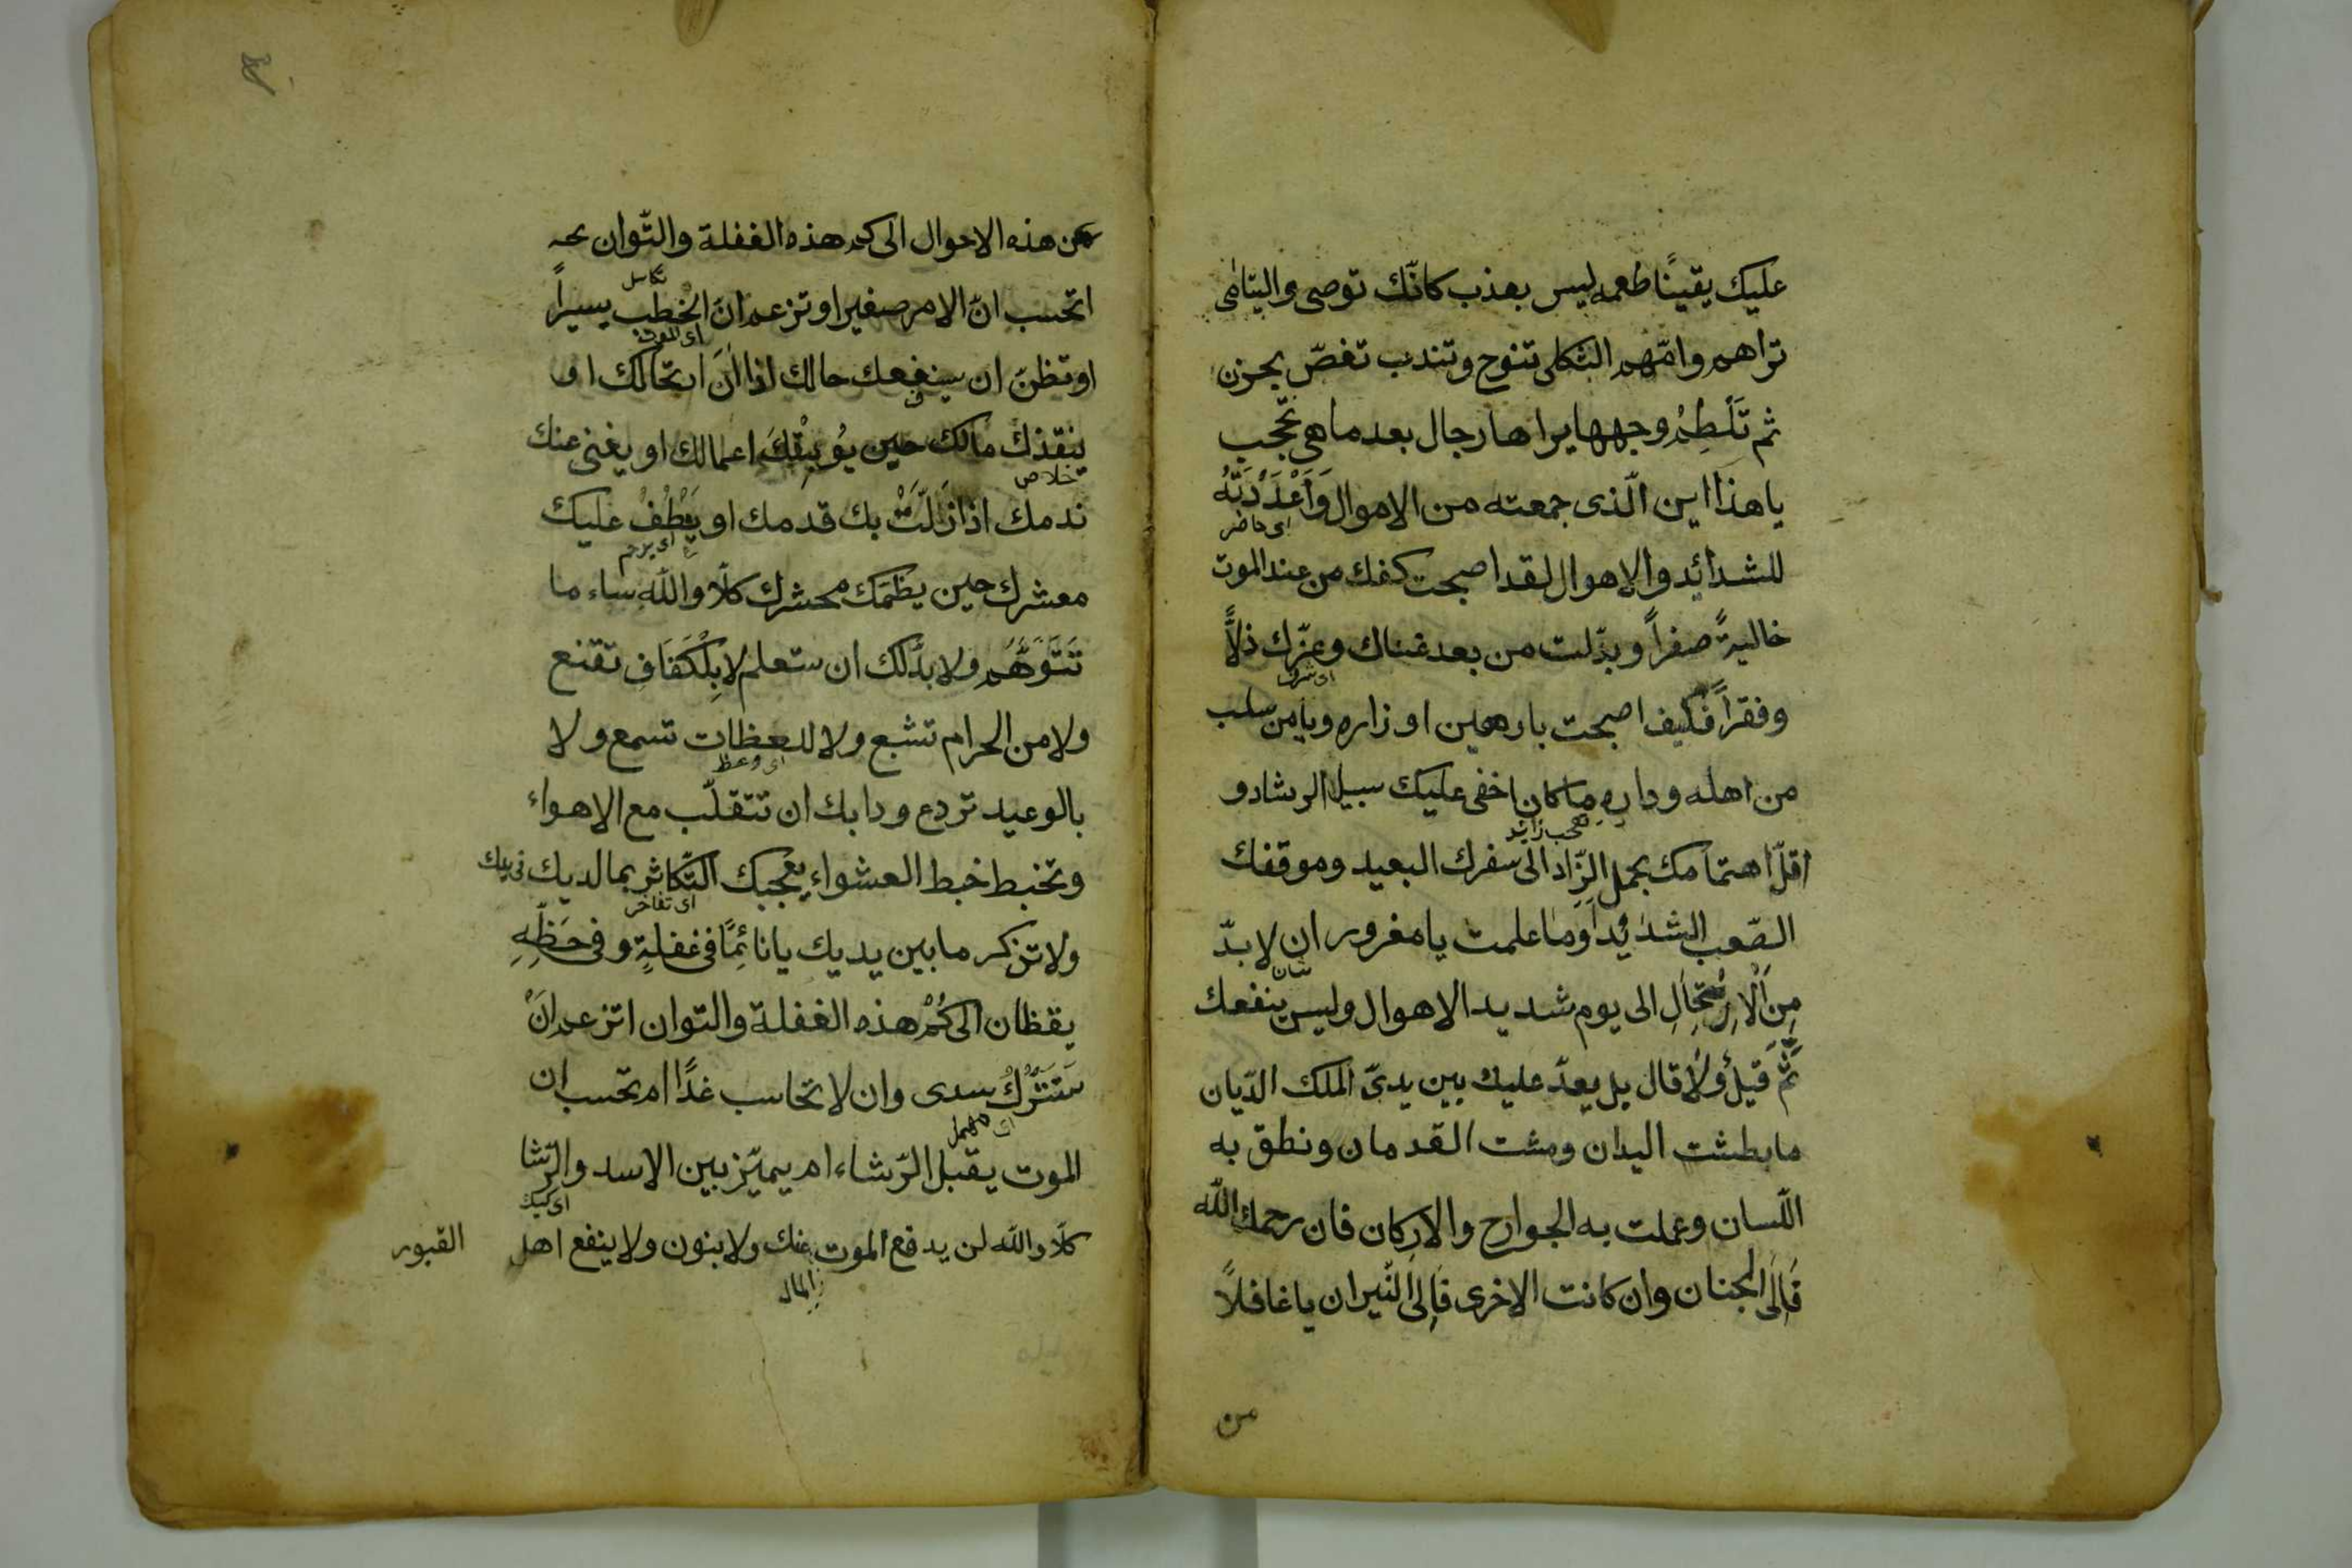 عليك يقينًا طعمه ليس بعذب كانّك توصى واليتامٰى
تراهم وامّهم الثكلى تنوح وتندب تغصّ بحزن
ثم تَلْطِمُ وجهها يراها رجال بعد ما هى تحّجب
يا هذا اين الّذى جمعته من الاموال وَاَعْدَدْتَهُ
اى حاضر
للشدائد والاهوال لقد اصبحت كفك من عند الموت
خاليةً صفراً وبدّلت من بعد غناك وعزّك ذلاًّ
وفقراً فكيف اصبحت يا رهين اوزاره ويا من سلب
من اهله وداره ما كان اخفى عليك سبيل الرشاد و
تعجب زائد
اقلّ اهتمامك بحمل الزّاد الى سفرك البعيد وموقفك
الصّعب الشدئيد اَوَما علمت يا مغرور ان لا بدّ
مِنَ اْلاِرْتِحَالِ الى يوم شديد الاهوال وليس ينفعك
ثَمَّ قيلٌ ولا قال بل يعدّ عليك بين يدىّ الملك الدّيان
ما بطشت اليدان ومشت القدمان ونطق به
اللّسان وعملت به الجوارح والاركان فان رحمك اللّه
فَاِلَى الجنان وان كانت الاخرى فَاِلىَ النّيران يا غافلاً
من
عن هذه الاحوال الى كم هذه الغفلة والتّوان
تكاسل
اتحسب انّ الامر صغيرا وتزعم انّ الْخطب يسيراً
اى الموت
او تظنّ ان سينفعك حالك اذا اٰنَ ارتحالك او
ينقذك مالك حين يُوبِقُكَ اعمالك او يغنى عنك
خلاص
ندمك اذا زَلَّتْ بك قدمك او يَعْطُفُ عليك
اى يرحم
معشرك حين يظمّك محشرك كلّا واللّه ساء ما
تَتَوَهَّمُ ولا بدّ لك ان ستعلم لا بِلْكَفَافِ تقنع
ولا من الحرام تشبع ولا للعظات تسمع ولا
اى وعظ
بالوعيد تردع ودابك ان تتقلّب مع الاهواء
وتخبط خبط العشواء يعجبك التّكاثر بما لديك
اى تفاخر
ولا تزكر ما بين يديك يا نائِمًا فى غفلةٍ وفى حَظِّهِ
يقظان الى كَمْ هذه الغفلة والتوان اتزعم اَنْ
سَتُتْرَكُ سدى وان لا تحاسب غدًا ام تحسب ان
اى مهمل
الموت يقبل الرّشاء ام يميّز بين الاسد والرّشا
كلّا واللّه لن يدفع الموت عنك ولا بنون ولا ينفع اهل
المال
القبور